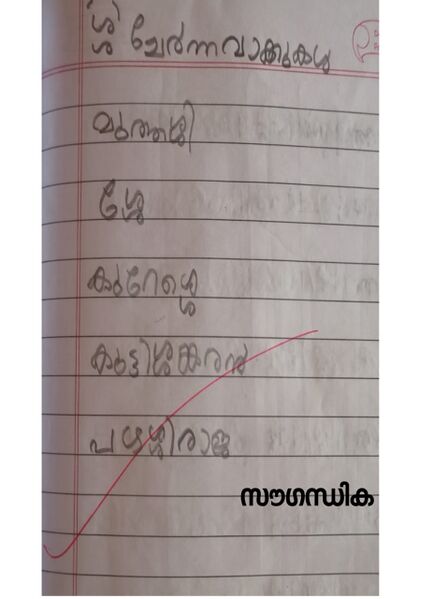 ശ്ശ ചേർന്നവാക്കുകൾ
മുത്തശ്ശി
ശ്ശേ
കുറേശ്ശെ
കുട്ടിശങ്കരൻ
പഴശ്ശിരാജ
സൗഗന്ധിക